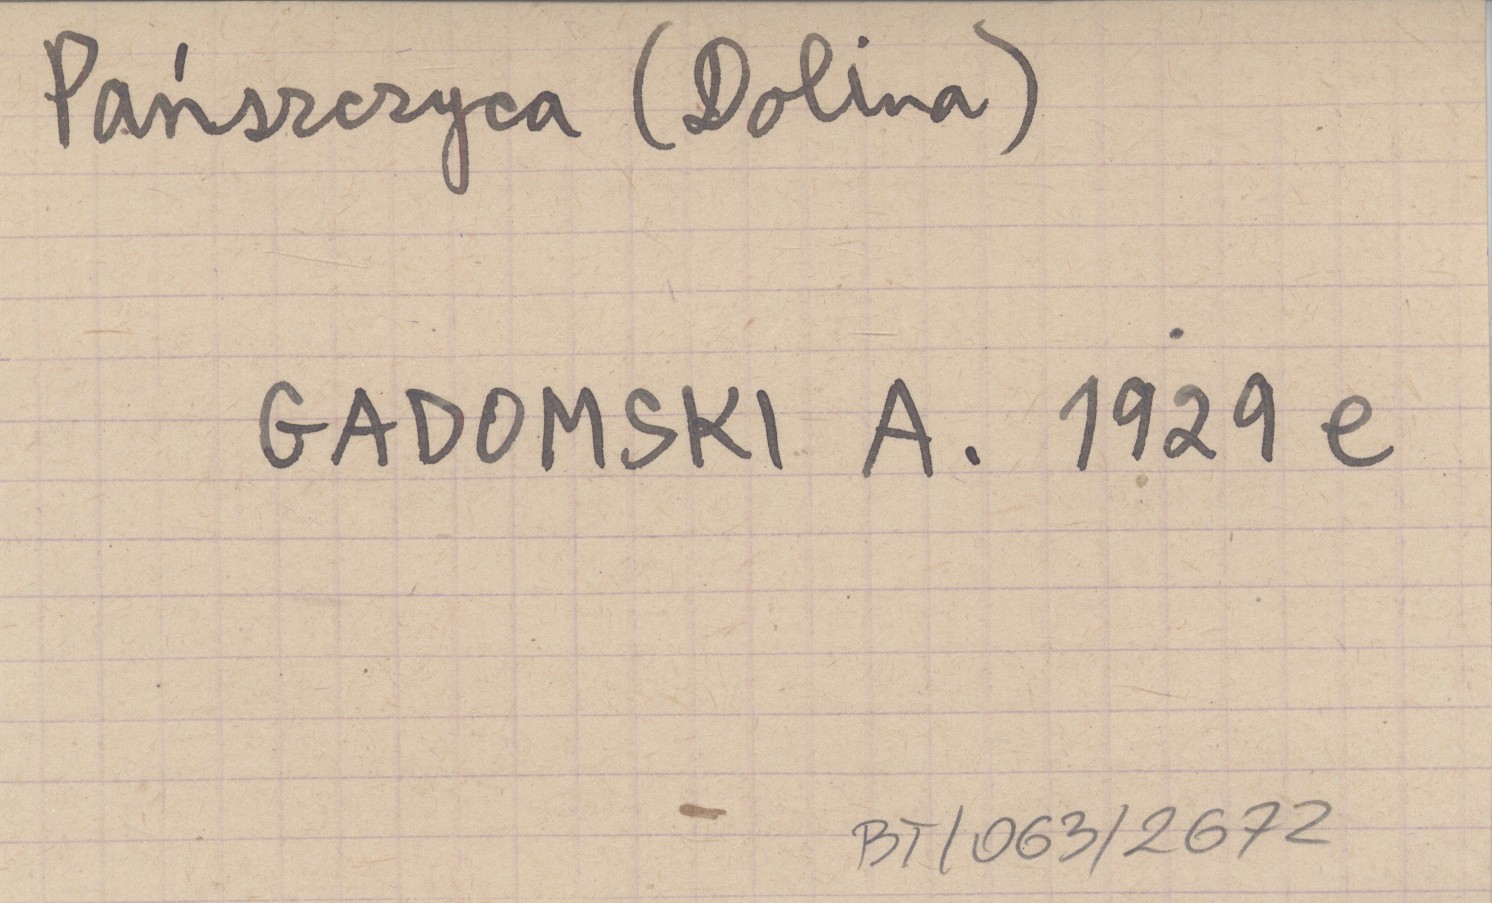 Pańszczyca (Dolina)
GADOMSKI A. 1929 e
BT/063/2672